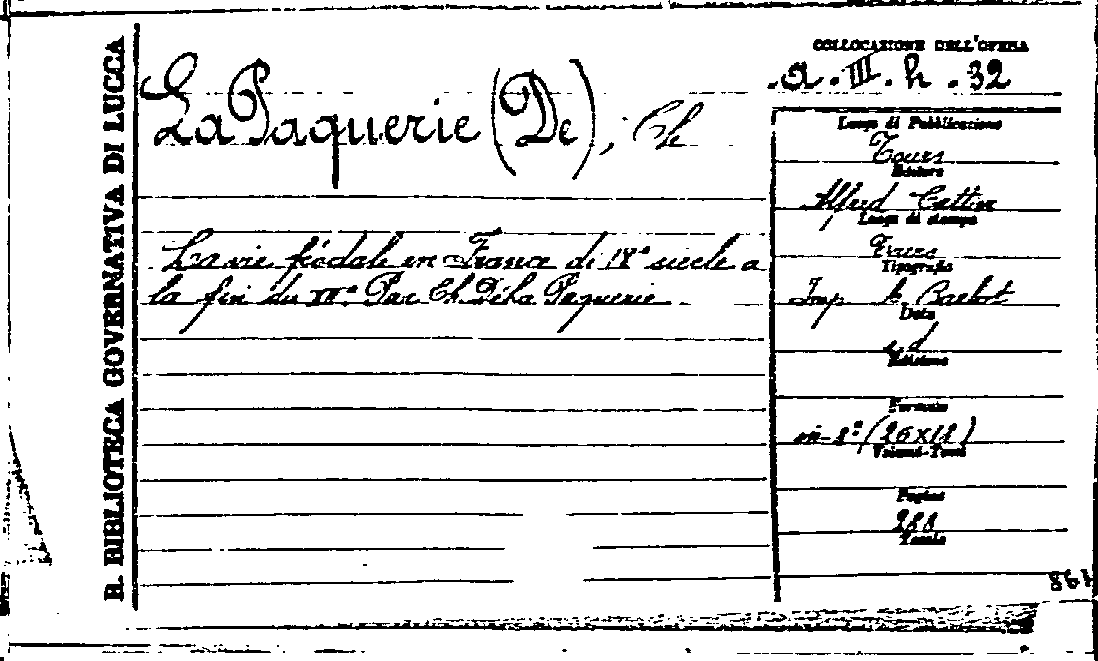 R. BIBLIOTECA GOVERNATIVA DI LUCCA
COLLOCAZIONE DELL'OPERA
a. III. h. 32
La Paquerie (De), Ch
La vie féodale en France di 18º siecle a
la fin du Par Ch. De La Paquerie
Luogo di Pubblicazione
Tours
Editore
Alfred Cattier
Luogo di stampa
Tours
Tipografia
Imp
Data
s.d
Edizione
Formato
in-8º (26x18)
Volumi-Tomi
Pagine
288
Tavole
861